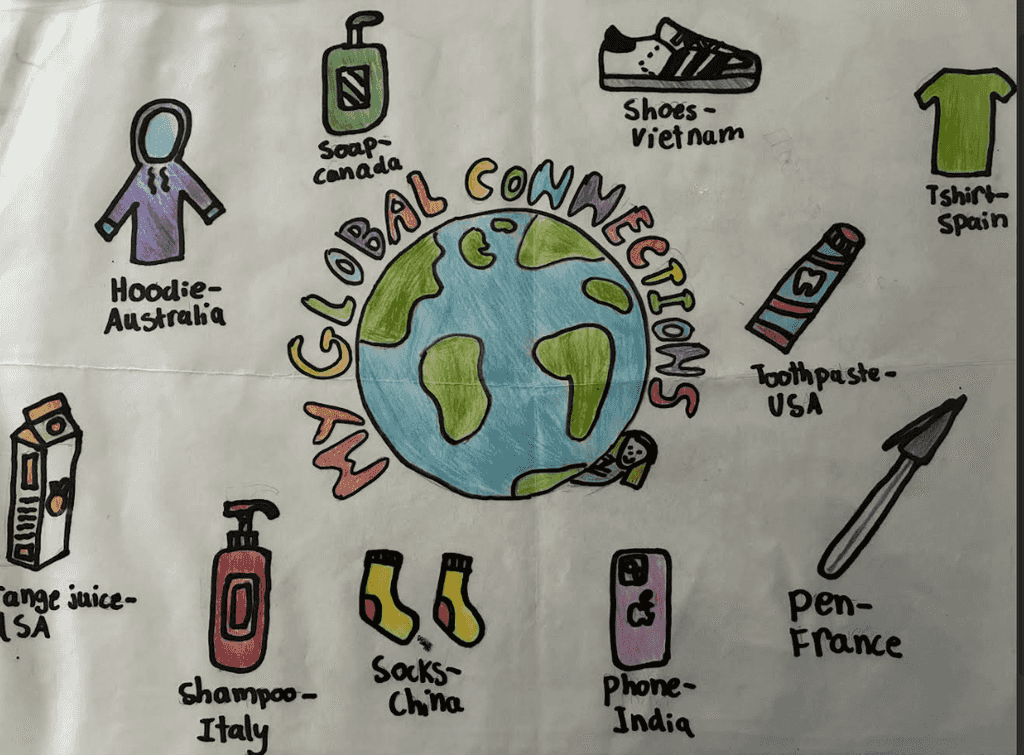 Soap-
Canada
Shoes-
Vietnam
Tshirt-
Spain
Hoodie-
Australia
MY GLOBAL CONNECTIONS
Toothpaste-
USA
range juice-
USA
Shampoo-
Italy
Socks-
China
Phone-
India
Pen-
France